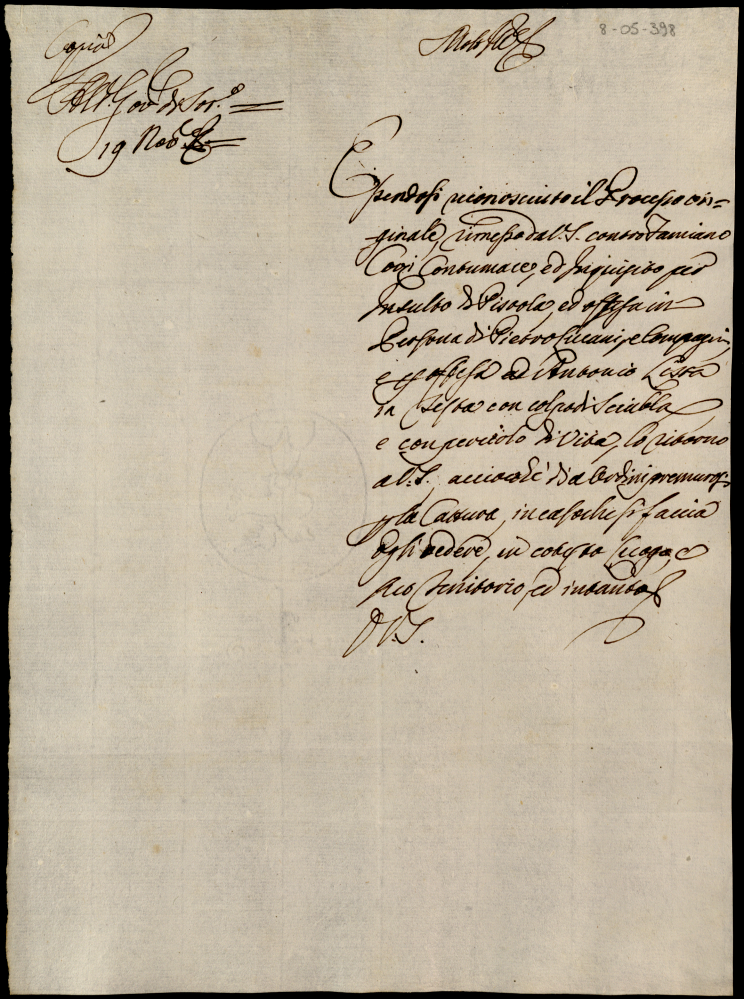 8-05-398
Copia
Al Gov.e di Sor.o
19 Nov.e
Molt'Ill.e
Essendosi riconosciuto il Processo ori=
ginale, rimesso da V. S. contro Damiano
Cogi Contumace, ed Inquisito per
Insulto di Pistola, ed offesa in
Persona di Pietro Lucani, e Compagni,
e offesa ad Antonio
in Testa con colpo di Sciabla
e con pericolo di Vita, lo ritorno
a V. S. acciocché dia Ordini premurosi
p la Cattura, in caso che si faccia
Egli vedere, in cotesto Luogo, e
suo Territorio, ed intanto
V. S.